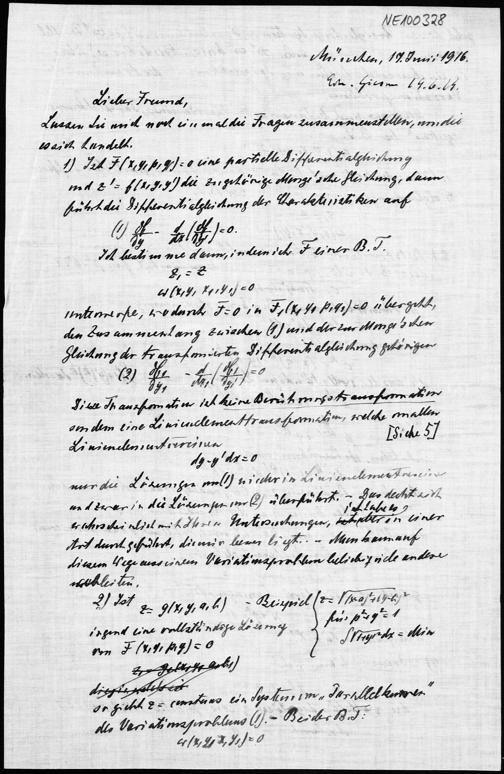 NE100328
München, 17. Juni 1916.
Lieber Freund,
Lassen Sie mich noch einmal die Fragen zusammenstellen, um die
es sich handelt.
1) Ist F(x,y,p,q)=0 eine partielle Differentialgleichung
und z' = f(x,y,y') die zugehörige Monge'sche Gleichung, dann
führt die Differentialgleichung der Charakteristiken auf
(1) ∂f/∂y - d/dx(∂f/∂y')=0.
Ich bestimme dann, indem ich F einer B.T.
z₁ = z
ω(x,y,x₁,y₁)=0
unterwerfe, wodurch F=0 in F₁(x₁,y₁,p₁,q₁)=0 übergeht,
den Zusammenhang zwischen (1) und der zur Monge'schen
Gleichung der transformierten Differentialgleichung gehörigen
(2) ∂f₁/∂y₁ - d/dx₁(∂f₁/∂y₁')=0
Diese Transformation ist keine Berührungstransformation
sondern eine Linienelementtransformation, welche von allen
[Siehe 5]
Linienelementvereinen
dy-y'dx=0
nur die Lösungen von (1) wieder in Linienelementvereine
und zwar in die Lösungen von (2) überführt. - Das deckt sich
mit Ihren Untersuchungen, in einer
Art durchgeführt, die mir besser liegt. - Man kann auf
diesem Wege aus einem Variationsproblem beliebig viele andere
ableiten.
2) Ist
z = g(x,y,a,b) - Beispiel { z = √(x-a)²+(y-b)²
für p²+q²=1
∫√1+y'² dx = Min
irgend eine vollständige Lösung
von F(x,y,p,q)=0
so giebt z = constans ein System von "Parallelkurven"
des Variationsproblems (1). - Bei der B.T:
ω(x,y,x₁,y₁)=0